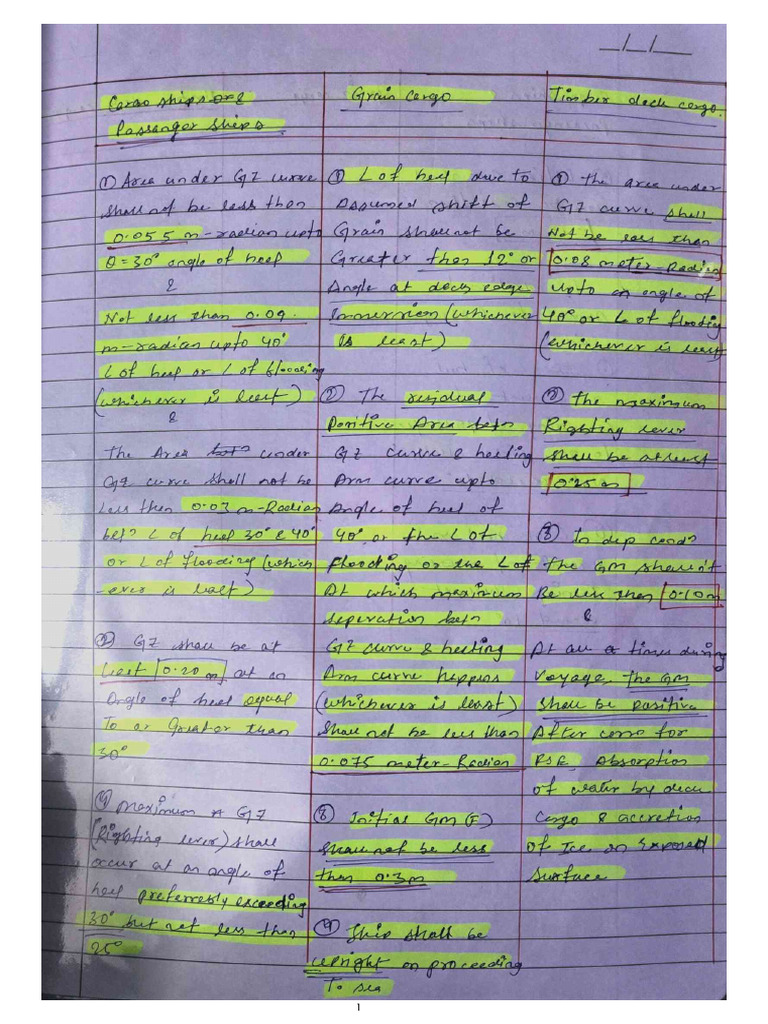 __/__/__
Cargo ships or &
Passanger ships
① Area under GZ curve
shall not be less than
0.055 m-radian upto
θ=30° angle of heel
&
Not less than 0.09
m-radian upto 40°
L of heel or L of flooding
(whichever is least)
&
The Area under
GZ curve shall not be
less then 0.03 m-Radian
betⁿ L of heel 30° & 40°
or L of flooding (which
-ever is least)
② GZ shall be at
least 0.20 m at an
Angle of heel equal
To or Greater than
30°
④ maximum GZ
(Righting lever) shall
occur at an angle of
heel preferrebly exceeding
30° but not less than
25°
Grain Cargo
① L of heel due to
Assumed shift of
Grain shall not be
Greater than 12° or
Angle at deck edge
Immersion (whichever
is least)
② The residual
Positive Area betn
GZ curve & heeling
Arm curve upto
Angle of heel of
40° or the L of
flooding or the L of
At which maximum
seperation betn
GZ curve & heeling
Arm curve happens
(whichever is least)
shall not be less than
0.075 meter-Radian
③ Initial GM (F)
shall not be less
then 0.3m
④ Ship shall be
upright on proceeding
To sea
Timber deck cargo.
① The area under
GZ curve shall
Not be less than
0.08 meter-Radian
upto an angle of
40° or L of flooding
(whichever is least
② The maximum
Righting lever
shall be at least
0.25 m
③ In dep condⁿ
the GM shouldn't
Be less then 0.10m
&
At all times during
voyage, the GM
shall be positive
After corrⁿ for
FSE, Absorption
of water by deck
Cargo & accretion
of Ice on Exposed
surface
1